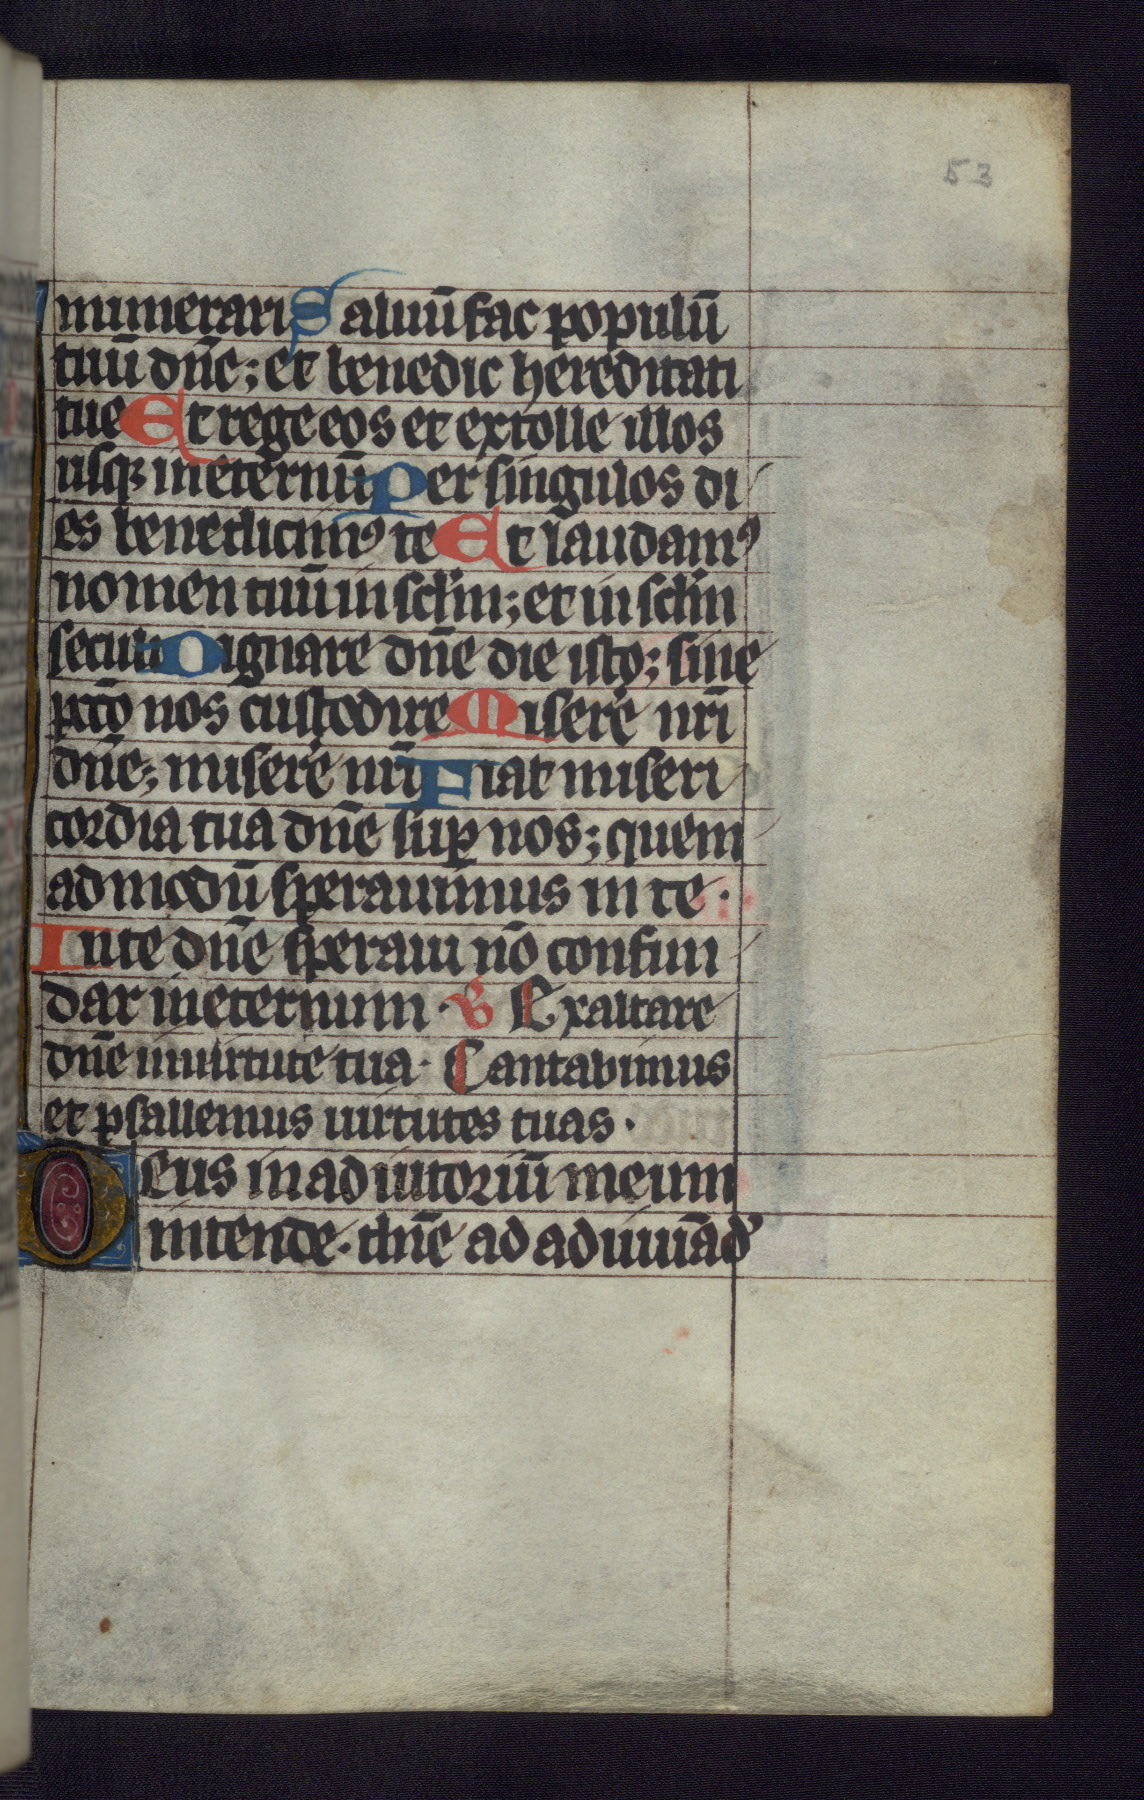 53
numerari Saluū fac populū
tuū dn̄e; et benedic hereditati
tue Et rege eos et extolle illos
usqꝫ in eternū Per singulos di
es benedicimꝰ te Et laudamꝰ
nomen tuū in sc̄lm; et in sc̄lm
seculi Dignare dn̄e die isto; sine
pct̄o nos custodire Misere nr̄i
dn̄e; misere nr̄i Fiat miseri
cordia tua dn̄e suꝑ nos; quem
admodū sperauimus in te.
In te dn̄e speraui nō confun
dar in eternum. V Exaltare
dn̄e in uirtute tua. Cantabimus
et psallemus uirtutes tuas.
Deus in adiutoriū meum
intende. dn̄e ad adiuuād'